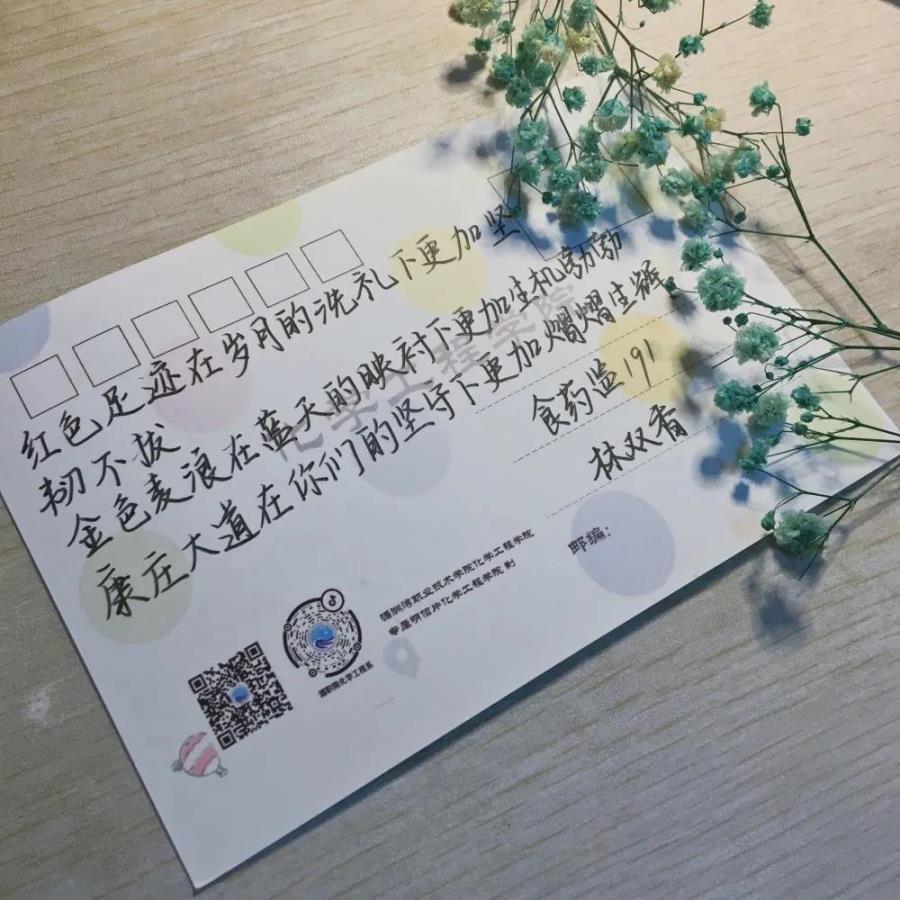 红色足迹在岁月的洗礼下更加坚
韧不拔
金色麦浪在蓝天的映衬下更加生机勃勃
康庄大道在你们的坚守下更加熠熠生辉
食药监191
林双香
化学工程学院
邮编：
湄洲湾职业技术学院化学工程学院
专属明信片化学工程学院 制
湄职院化学工程系